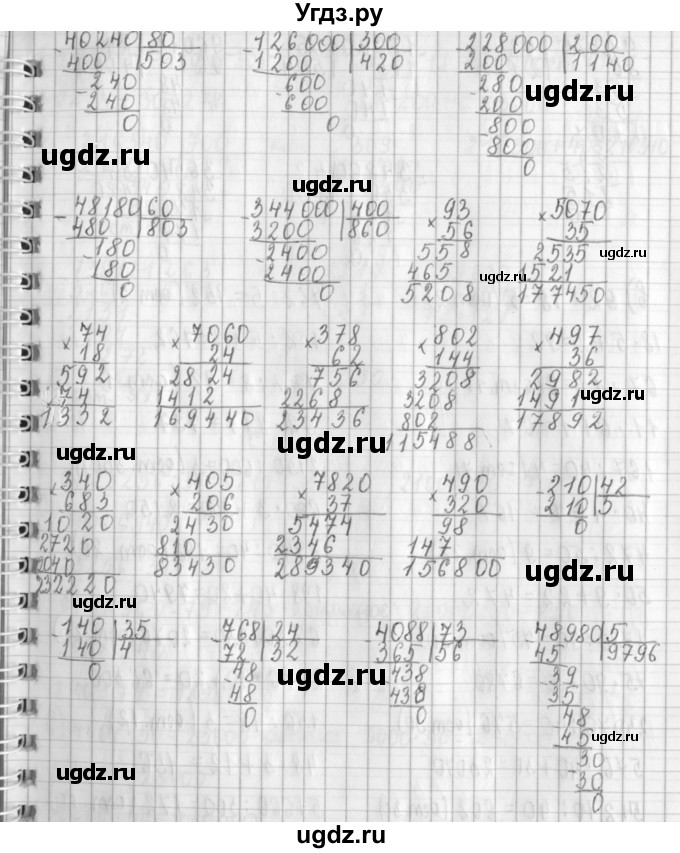 Угдз.ру
40240|80 126000|300 228000|200
400 503 1200 420 200 1140
240 600 280
240 600 200
0 0 800
800
0
ugdz.ru
ugdz.ru
ugdz.ru
48180|60 344000|400 × 93 × 5070
480 803 3200 860 56 35
180 2400 558 2535
180 2400 465 1521
0 0 5208 177450
ugdz.ru
ugdz.ru
× 74 × 7060 × 378 × 802 × 497
18 24 62 144 36
592 2824 756 3208 2982
74 1412 2268 3208 1491
1332 169440 23436 802 17892
115488
ugdz.ru
ugdz.ru
ugdz.ru
× 340 × 405 × 7820 × 490 210|42
683 206 37 320 210 5
1020 2430 5474 98 0
2720 810 2346 147
2040 83430 289340 156800
232220
ugdz.ru
ugdz.ru
140|35 768|24 4088|73 48980|5
140 4 72 32 365 56 45 9796
0 48 438 39
48 438 35
0 0 48
45
30
30
0
ugdz.ru
ugdz.ru
ugdz.ru
ugdz.ru
ugdz.ru